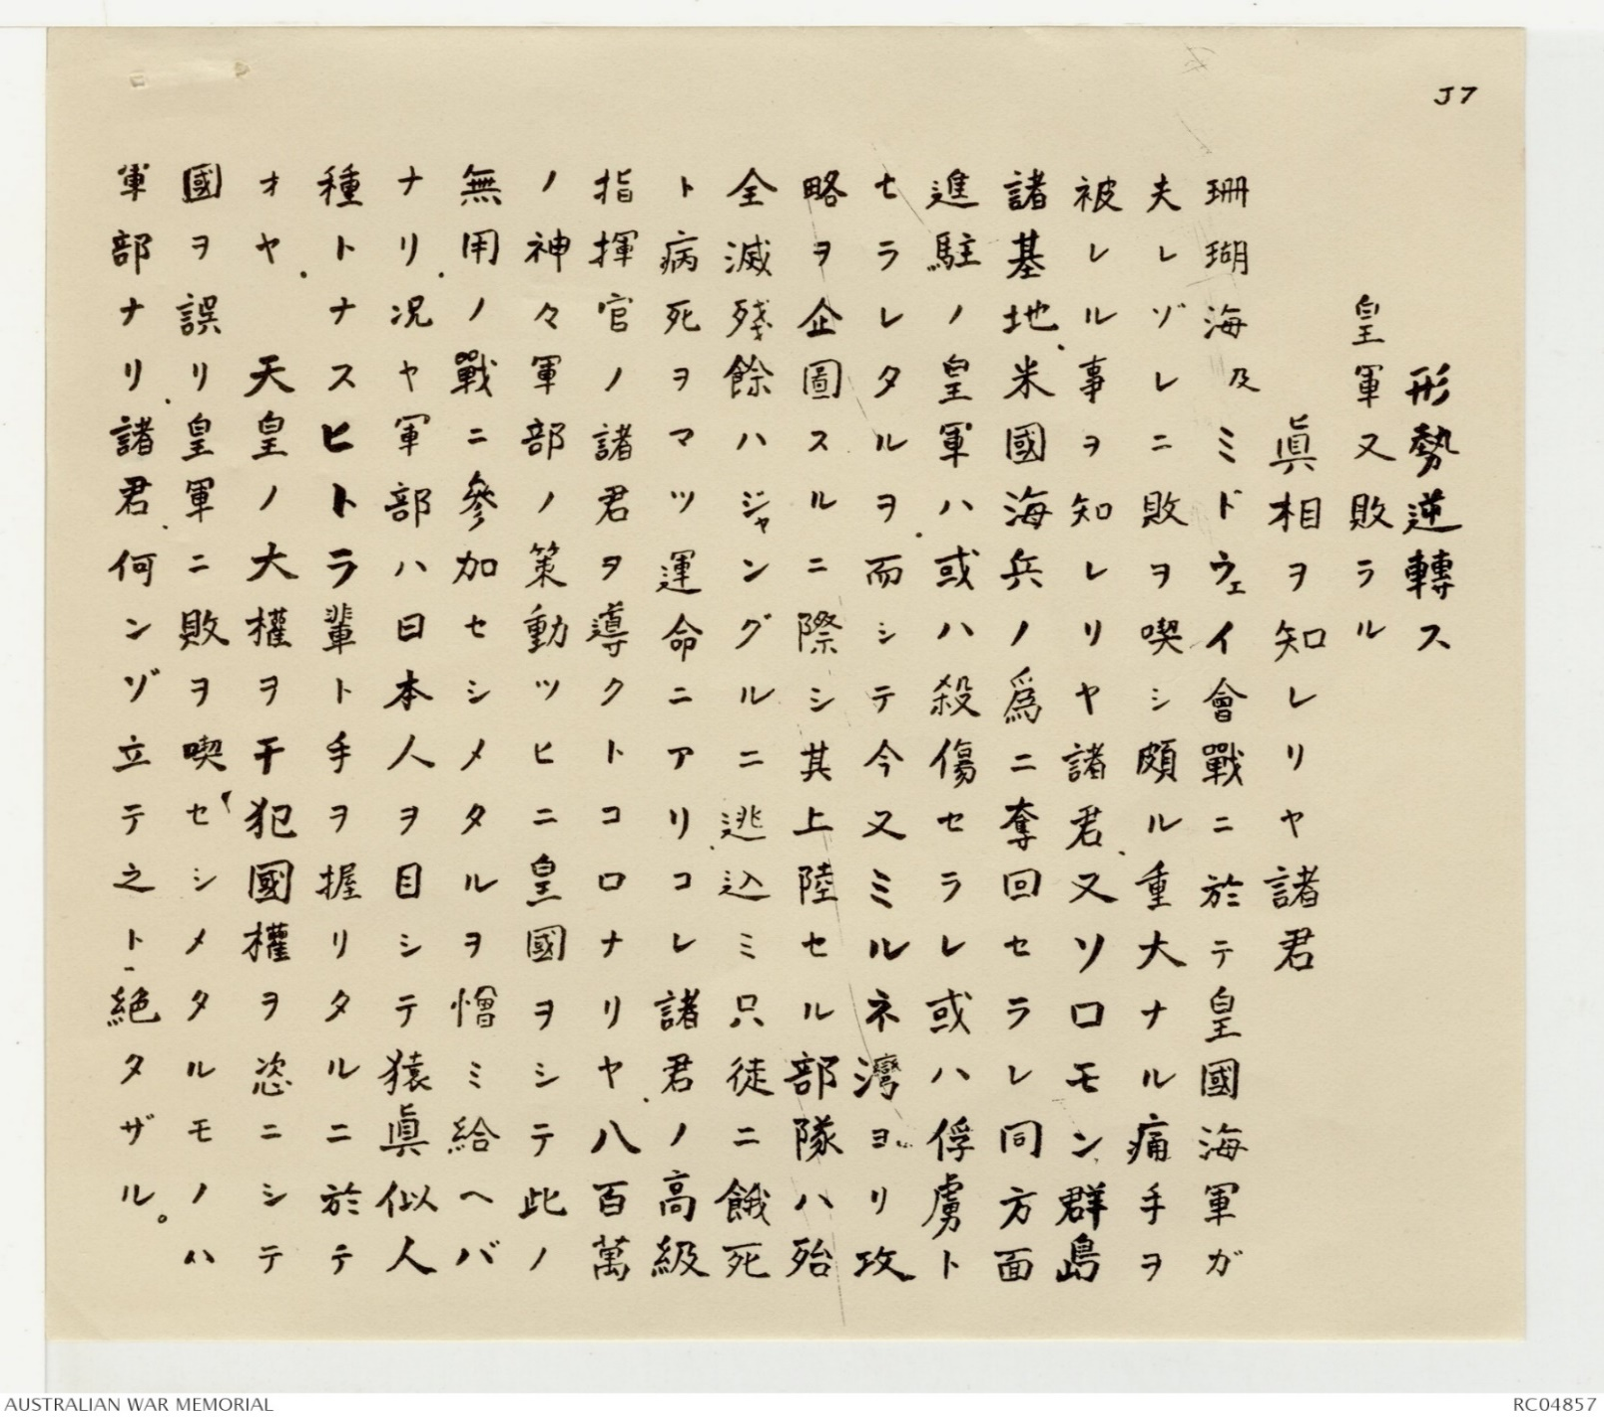 J7
形勢逆轉ス
皇軍又敗ラル
眞相ヲ知レリヤ諸君
珊瑚海及ミドウェイ會戰ニ於テ皇國海軍ガ
夫レゾレニ敗ヲ喫シ頗ル重大ナル痛手ヲ
被レル事ヲ知レリヤ諸君.又ソロモン群島
諸基地.米國海兵ノ爲ニ奪回セラレ同方面
進駐ノ皇軍ハ或ハ殺傷セラレ或ハ俘虜ト
セラレタルヲ.而シテ今又ミルネ灣ヨリ攻
略ヲ企圖スルニ際シ其上陸セル部隊ハ殆
全滅殘餘ハジャングルニ逃込ミ只徒ニ餓死
ト病死ヲマツ運命ニアリ.コレ諸君ノ高級
指揮官ノ諸君ヲ導クトコロナリヤ.八百萬
ノ神々軍部ノ策動ツヒニ皇國ヲシテ此ノ
無用ノ戰ニ參加セシメタルヲ憎ミ給ヘバ
ナリ.况ヤ軍部ハ日本人ヲ目シテ猿眞似人
種トナスヒトラ輩ト手ヲ握リタルニ於テ
オヤ.　天皇ノ大權ヲ干犯國權ヲ恣ニシテ
國ヲ誤リ.皇軍ニ敗ヲ喫セシメタルモノハ
軍部ナリ諸君.何ンゾ立テ之ト絶タザル。
AUSTRALIAN WAR MEMORIAL
RC04857